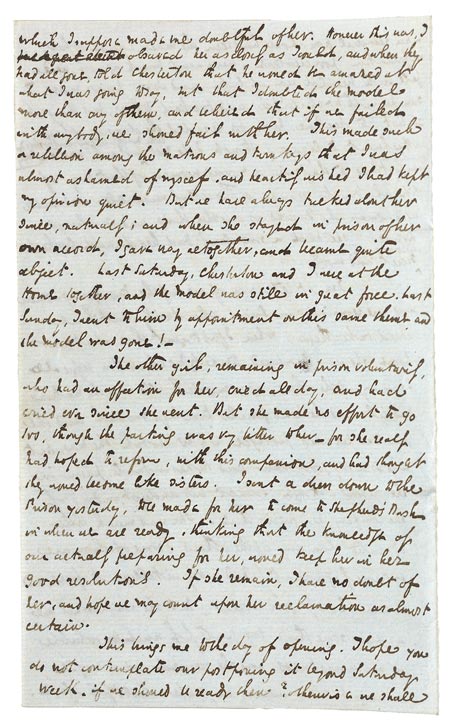 which I suppose made me doubtful of her. However this was, I
observed her as closely as I could, and when they
had all gone, told Chesterton that he would be amazed at
what I was going to say, but that I doubted the model
more than any of them, and believed that if we failed
with any body, we should fail with her. This made such
a rebellion among the matrons and turnkeys that I was
almost ashamed of myself, and heartily wished I had kept
my opinion quiet. But we have always talked about her
since, naturally; and when she stayed in prison of her
own accord, I gave way altogether, and became quite
abject. Last Saturday, Chesterton and I were at the
Home together, and the model was still in great force. Last
Sunday, I went to him by appointment on this same theme and
the model was gone!—
The other girl, remaining in prison voluntarily,
who had an affection for her, cried all day, and had
cried ever since she went. But she made no effort to go
too, though the parting was very bitter to her— for she really
had hoped to reform, with this companion, and had thought
they would become like sisters. I sent a dress down to the
Prison yesterday, to be made for her to come to Shepherd's Bush
in when we are ready, thinking that the knowledge of
our actually preparing for her, would keep her in her
good resolutions. If she remain, I have no doubt of
her, and hope we may count upon her reclamation as almost
certain.
This brings me to the day of opening. I hope you
do not contemplate our postponing it beyond Saturday
week, if we should be ready then? Otherwise we shall